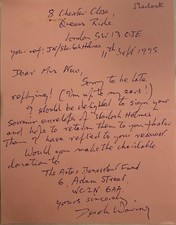 Sherlock
8 Chester Close,
Queens Ride,
London SW13 0JE
your ref: JN/
11th Sept 1995
Dear Mrs New,
Sorry to be late
replying! (I'm up to my ears!)
I should be delighted to sign your
souvenir envelope of Sherlock Holmes
and hope to return them to you
Then I have reflected to your
Would you make the charitable
donation to
The Actors Benevolent Fund
6, Adam Street,
WC2N 6AA.
yours sincerely